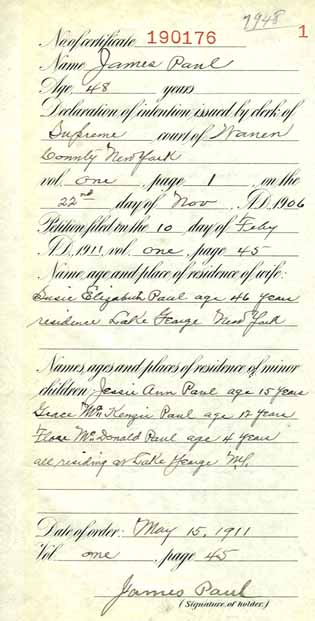 7948
1
No of certificate 190176
Name James Paul
Age 48 years
Declaration of intention issued by clerk of
Supreme court of Warren
County New York
vol. one, page 1, on the
22nd day of Nov, A.D. 1906
Petition filed on the 10 day of Feby
A.D. 1911, vol. one, page 45
Name, age and place of residence of wife:
Susie Elizabeth Paul age 46 years
residence Lake George New York
Names, ages and places of residence of minor
children: Jessie Ann Paul age 15 years
Grace McKenzie Paul age 12 years
Flora McDonald Paul age 4 years
all residing at Lake George N.Y.
Date of order: May 15, 1911
Vol. one, page 45
James Paul
(Signature of holder.)